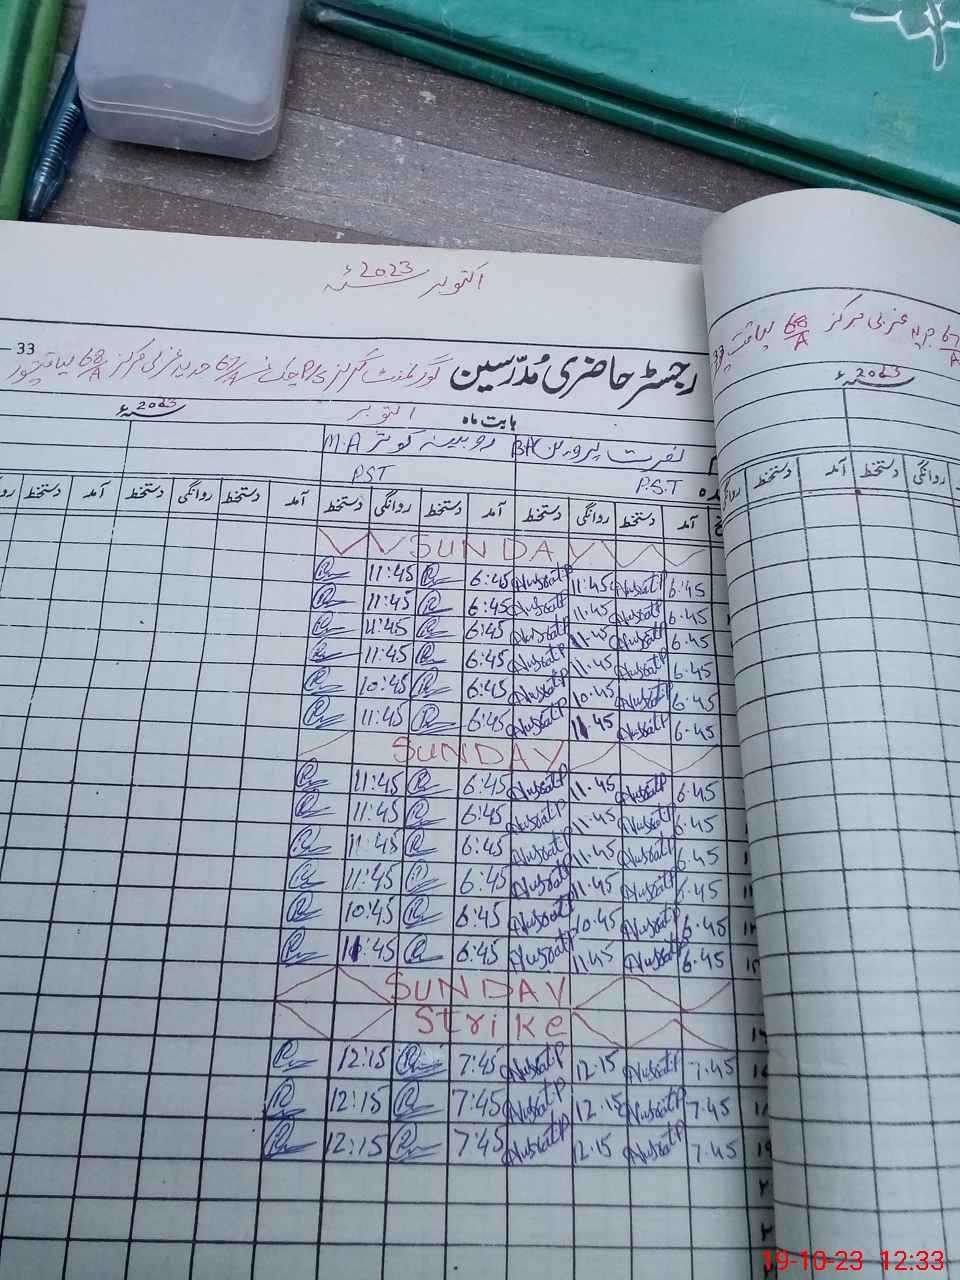 اکتوبر 2023ء
33
رجسٹر حاضری مُدرّسین گورنمنٹ گرلز P/S چک نمبر 67/A جدید غربی مرکز 68/A لیاقت پور
بابت ماہ اکتوبر 2023ء
نصرت پروین BA روبینہ کوثر M.A
P.S.T PST
آمد دستخط روانگی دستخط آمد دستخط روانگی دستخط آمد دستخط روانگی دستخط آمد دستخط
SUNDAY
6:45 Nusrat.P 11:45 Nusrat.P 6:45 11:45
6.45 Nusrat.P 11.45 Nusrat.P 6:45 11:45
6.45 Nusrat.P 11.45 Nusrat.P 6:45 11:45
6.45 Nusrat.P 11.45 Nusrat.P 6:45 11:45
6.45 Nusrat.P 10.45 Nusrat.P 6:45 10:45
6.45 Nusrat.P 11.45 Nusrat.P 6:45 11:45
SUNDAY
6.45 Nusrat.P 11.45 Nusrat.P 6:45 11:45
6.45 Nusrat.P 11.45 Nusrat.P 6:45 11:45
6.45 Nusrat.P 11.45 Nusrat.P 6:45 11:45
6.45 Nusrat.P 11.45 Nusrat.P 6:45 11:45
6.45 Nusrat.P 10.45 Nusrat.P 6:45 10:45
6.45 Nusrat.P 11.45 Nusrat.P 6:45 11:45
SUNDAY
Strike
7.45 Nusrat.P 12.15 Nusrat.P 7:45 12:15
۱۸ 7.45 Nusrat.P 12.15 Nusrat.P 7:45 12:15
۱۹ 7.45 Nusrat.P 12.15 Nusrat.P 7:45 12:15
غربی مرکز 68/A لیاقت پور
2023ء
آمد دستخط روانگی دستخط
19-10-23 12:33